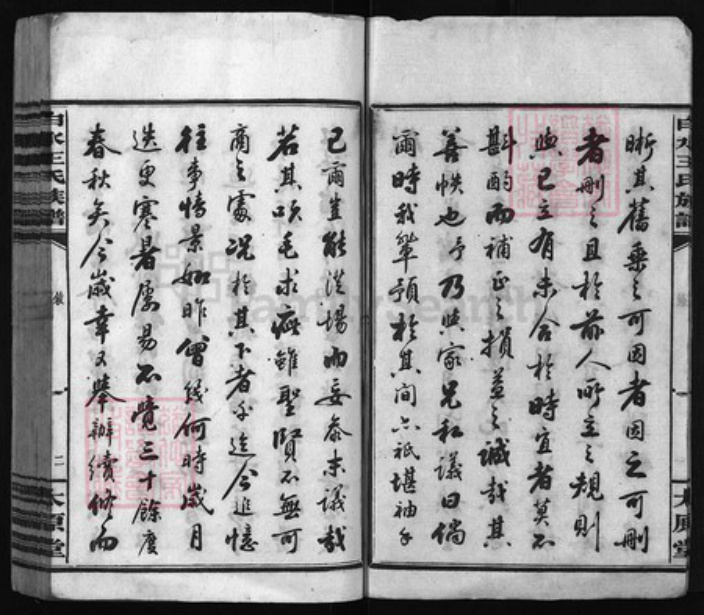 晰其舊乘之可因者因之可刪
者刪之且於前人所立之規則
與已立有未合於時宜者莫不
斟酌而補正之損益之誠哉其
善帙也予乃與家兄私議曰倘
爾時我輩預於其間亦祇堪袖手
已爾豈能從場而妄參末議哉
若其吹毛求疵雖聖賢不無可
商之處况於其下者乎迄今追憶
往事情景如昨曾幾何時歲月
迭更寒暑屢易不覺三十餘度
春秋矣今歲幸又舉辦續修而
白水王氏族譜
二
太原堂